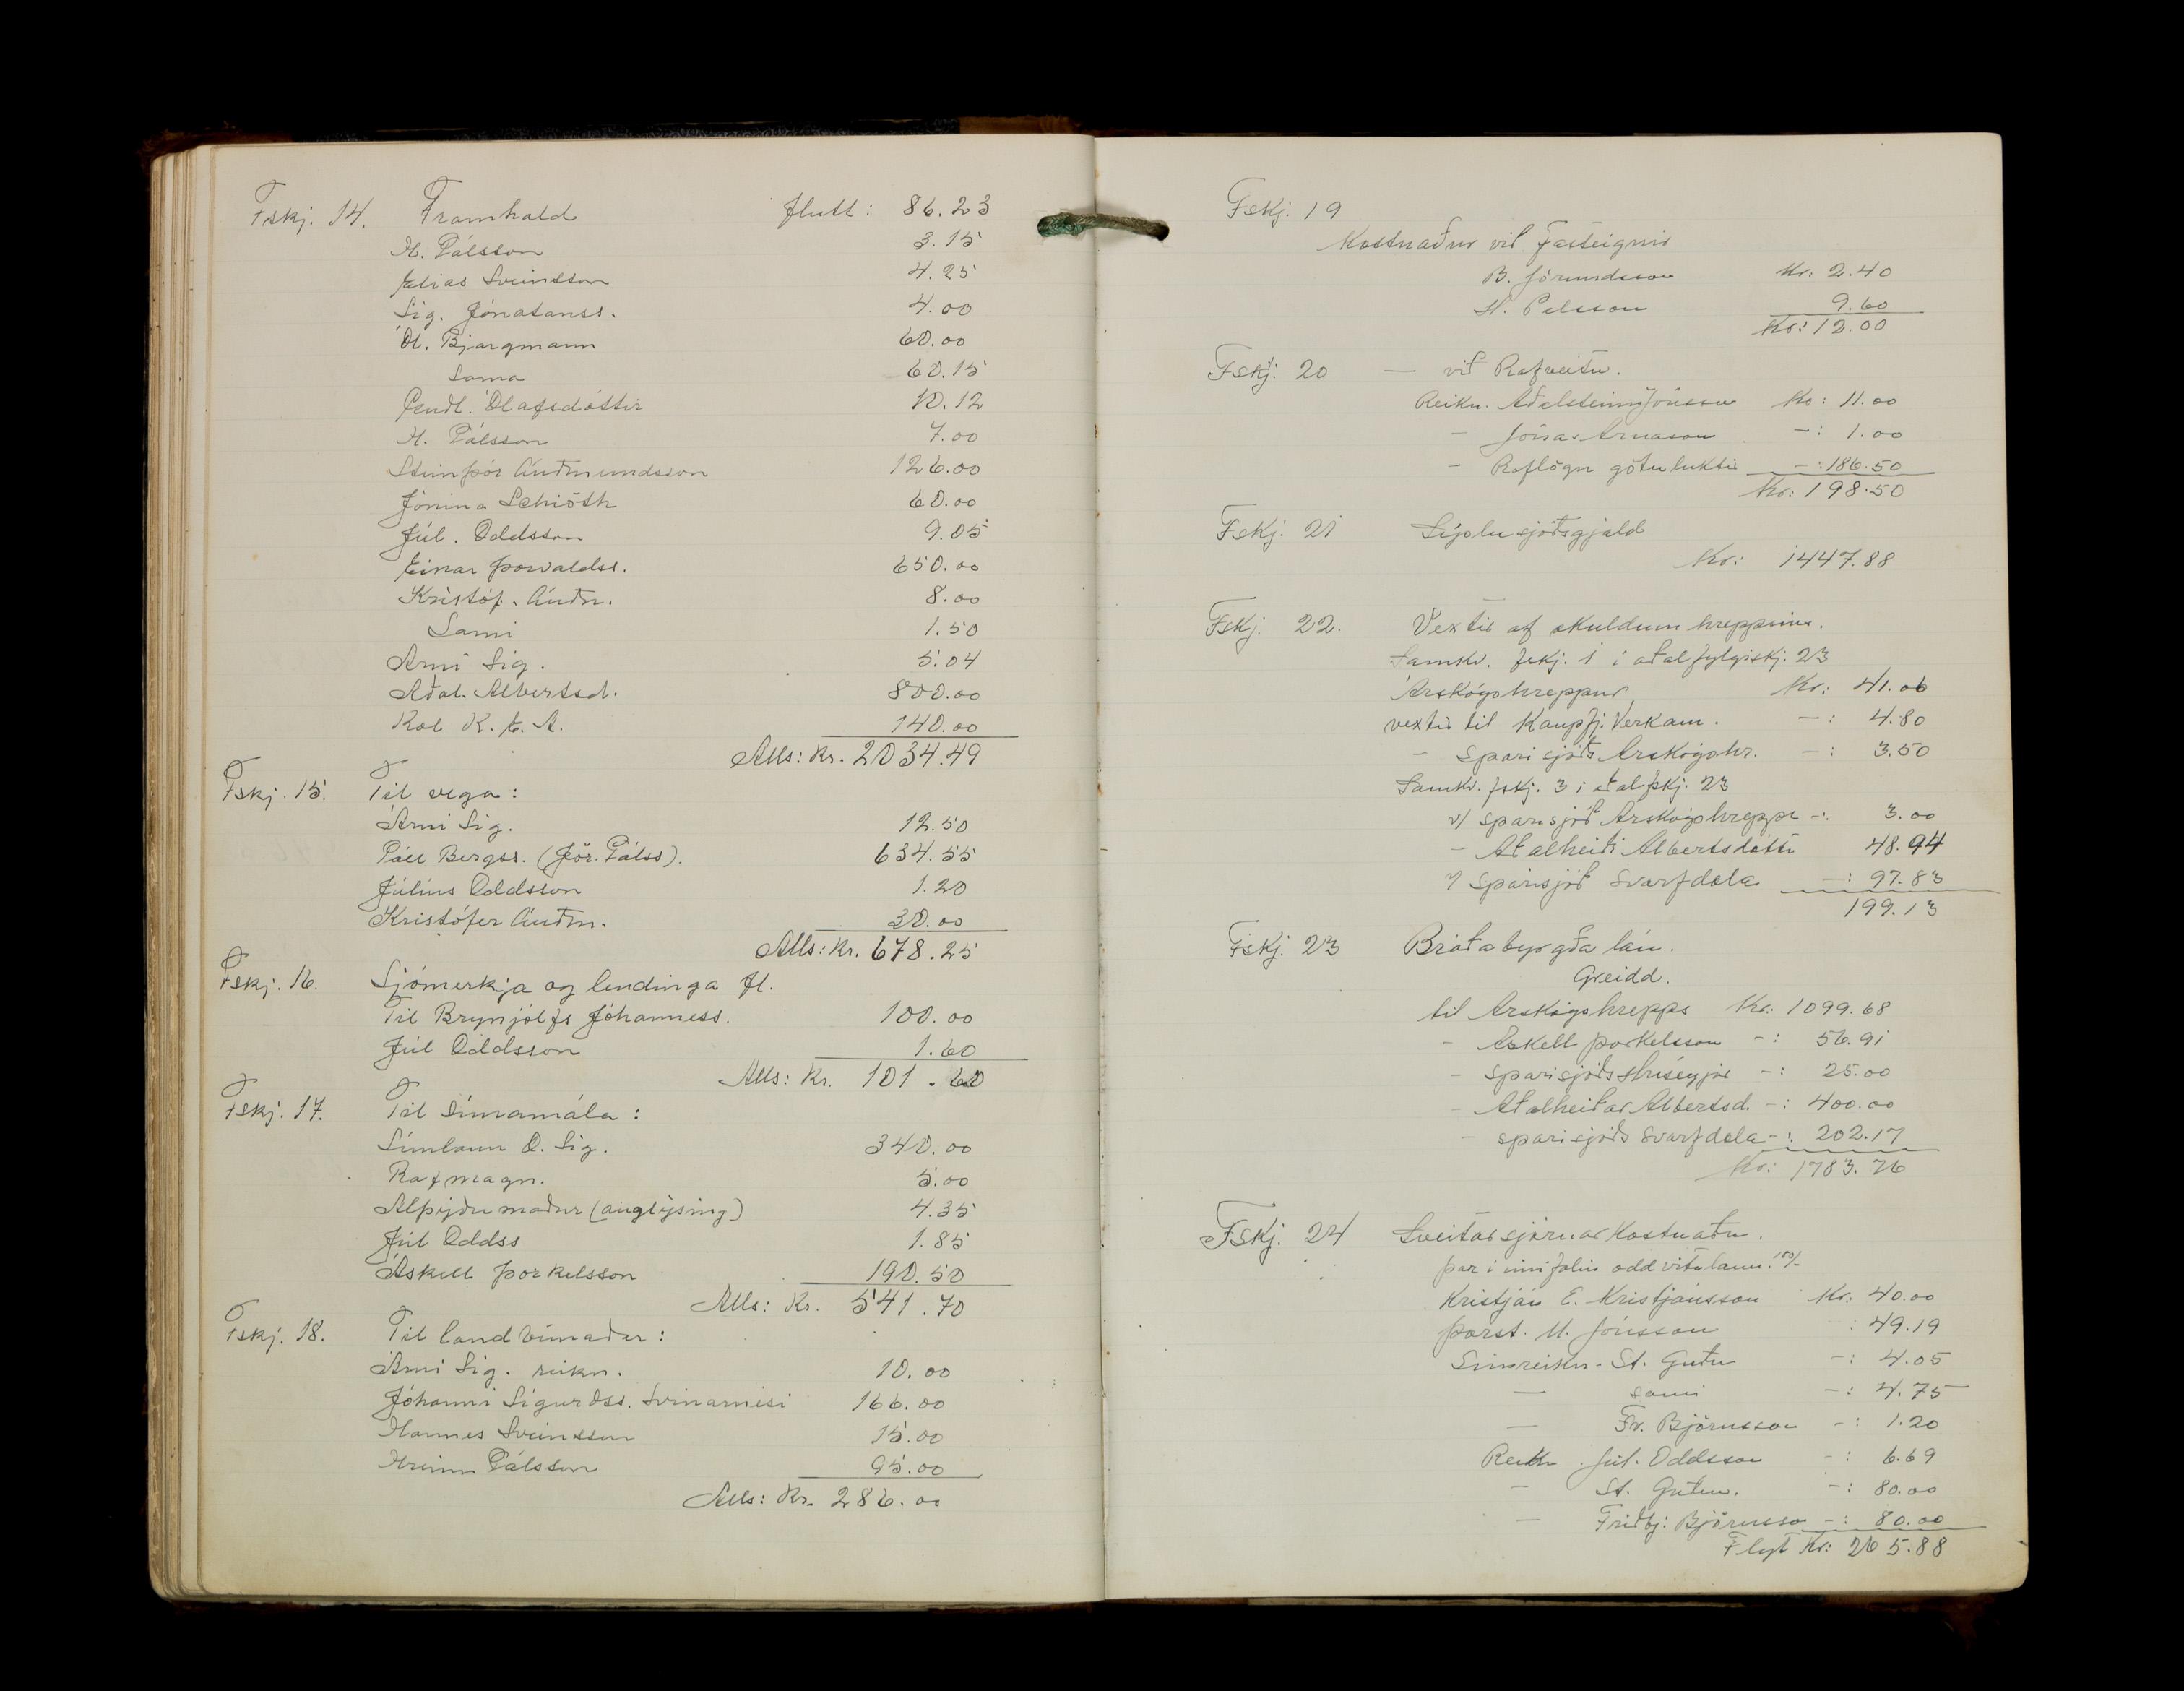 Fskj. 14. Framhald flutt: 86.23
H. Pálsson 3.15
Elías Sveinsson 4.25
Sig. Jónatanss. 4.00
Ól. Bjargmann 60.00
Sama 60.15
Guðl. Ólafsdóttir 10.12
H. Pálsson 7.00
Steinþór Guðmundsson 126.00
Jónína Schiöth 60.00
Júl. Oddsson 9.05
Einar Þorvaldss. 650.00
Kristóf. Guðm. 8.00
Sami 1.50
Árni Sig. 5.04
Aðal. Albertsd. 800.00
Kol K.E.A. 140.00
Alls: Kr. 2034.49
Fskj. 15. Til vega:
Árni Sig. 12.50
Páll Bergss. (Jör. Pálss). 634.55
Júlíus Oddsson 1.20
Kristófer Guðm. 30.00
Alls: Kr. 678.25
Fskj. 16. Sjómerkja og lendinga fl.
Til Brynjólfs Jóhanness. 100.00
Júl Oddsson 1.60
Alls: Kr. 101.60
Fskj. 17. Til símamála:
Símlaun O. Sig. 340.00
Rafmagn. 5.00
Alþýðumaður (auglýsing) 4.35
Júl Oddss 1.85
Áskell Þorkelsson 190.50
Alls: Kr. 541.70
Fskj. 18. Til landbúnaðar:
Árni Sig. reikn. 10.00
Jóhanni Sigurðss. Svínarnesi 166.00
Hannes Sveinsson 15.00
Hreinn Pálsson 95.00
Alls: Kr. 286.00
Fskj. 19
Kostnaður við Fasteignir
B. Jörundsson Kr: 2.40
H. Pálsson 9.60
Kr: 12.00
Fskj. 20 — við Rafveitu.
Reikn. Aðalsteinn Jónsson Kr: 11.00
- Jónas Árnason -: 1.00
- Raflögn götuluktir -: 186.50
Kr: 198.50
Fskj. 21 Sýslusjóðsgjald
Kr: 1447.88
Fskj. 22. Vextir af skuldum hreppsins.
Samkv. fskj. 1 í aðalfylgiskj. 23
Árskógshreppur Kr: 41.06
vextir til Kaupfj. Verkam. -: 4.80
- Sparisjóðs Árskógshr. -: 3.50
Samkv. fskj. 3 í aðalfskj. 23
v/ Sparisjóð Árskógshrepps -: 3.00
- Aðalheiði Albertsdóttir 48.94
v/ Sparisjóð Svarfdæla -: 97.83
199.13
Fskj. 23 Bráðabyrgða lán.
Greidd.
til Árskógshrepps Kr: 1099.68
- Áskell Þorkelsson -: 56.91
- Sparisjóðs Hríseyjar -: 25.00
- Aðalheiðar Albertsd. -: 400.00
- sparisjóðs Svarfdæla -: 202.17
Kr: 1783.76
Fskj. 24 Sveitarstjórnarkostnaður.
þar í innifalin oddvitalaun.
Kristján E. Kristjánsson Kr: 40.00
Þorst. M. Jónsson : 49.19
Símreikn. St. Guðm -: 4.05
— sami -: 4.75
— Fr. Björnsson -: 1.20
Reikn. Júl. Oddsson -: 6.69
- St. Guðm. -: 80.00
— Friðbj: Björnsson -: 80.00
Flyt Kr: 265.88